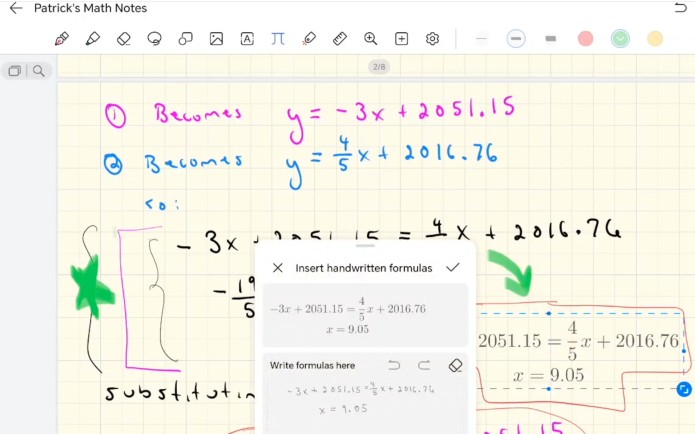 Patrick's Math Notes
2/8
① Becomes y = -3x + 2051.15
② Becomes y = 4/5 x + 2016.76
so:
- 3x + 2051.15 = 4/5 x + 2016.76
- 19/5
Insert handwritten formulas
-3x + 2051.15 = 4/5 x + 2016.76
x = 9.05
Write formulas here
-3x + 2051.15 = 4/5 x + 2016.76
x = 9.05
2051.15 = 4/5 x + 2016.76
x = 9.05